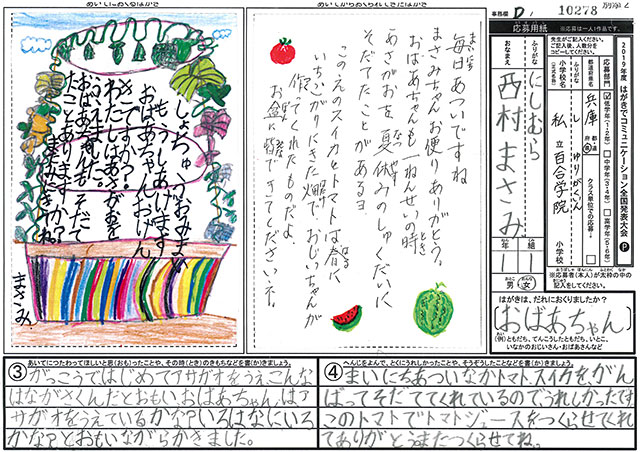 あいてにおくるはがき
しょちゅうおみまい
もうしあげます
おばあちゃんおげん
きですか?
わたしはあさがおを
うえました。
おばあちゃんもそだて
たことありますか?
まさみ
あいてからおくられてきたはがき
毎日あついですね
まさみちゃんお便りありがとう。
おばあちゃんも一ねんせいの時
あさがおを夏休みのしゅくだいに
そだてたことがあるヨ
このえのスイカとトマトは春に、
いちごがりにきた畑で、おじいちゃんが
作ってくれたものだよ
お盆に皆できてくださいネ。
事務欄
10278
応募用紙
※応募は一人1作品です。
2019年度 はがきでコミュニケーション全国発表大会
応募部門
低学年(1・2年)
中学年(3・4年)
高学年(5・6年)
都道府県名
兵庫
都道府県
クラス単位での応募
小学校名
ふりがな
しりつ ゆりがくいん
私立百合学院
小学校
おなまえ
ふりがな
にしむら
西村 まさみ
1年
1組
男・女
※応募者(本人)が太枠の中の
記入をしてください。
はがきは、だれにおくりましたか?
おばあちゃん
(例)ともだち、てんこうしたともだち、いとこ、
いなかのおじいさん・おばあさんなど
③
あいてにつたわってほしいと思(おも)ったことや、その時(とき)のきもちなどを書(か)きましょう。
がっこうではじめてアサガオをうえ、こんな
はながさくんだとおもい、おばあちゃんはア
サガオをうえているかな?いろはなにいろ
かな?とおもいながらかきました。
④
へんじをよんで、とくにうれしかったことや、そうぞうしたことなどを書(か)きましょう。
まいにちあついなかトマト、スイカを、がん
ばってそだててくれているのでうれしかったです
このトマトでトマトジュースをつくらせてくれ
てありがとうまたつくらせてね。